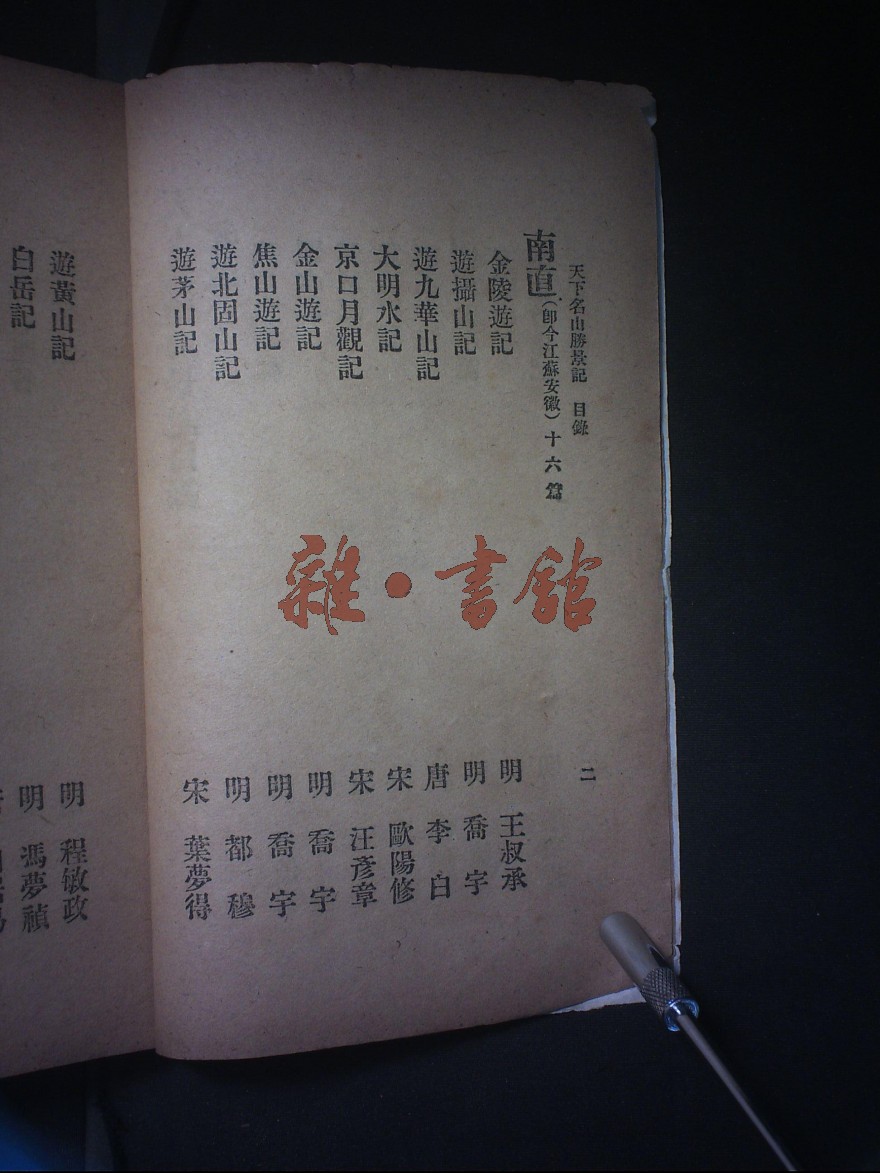 天下名山勝景記 目錄 二
南直(卽今江蘇安徽)十六篇
金陵遊記 明 王叔承
遊攝山記 明 喬宇
遊九華山記 唐 李白
大明水記 宋 歐陽修
京口月觀記 宋 汪彥章
金山遊記 明 喬宇
焦山遊記 明 喬宇
遊北固山記 明 都穆
遊茅山記 宋 葉夢得
遊黃山記 明 程敏政
白岳記 明 馮夢禎
雜·書館